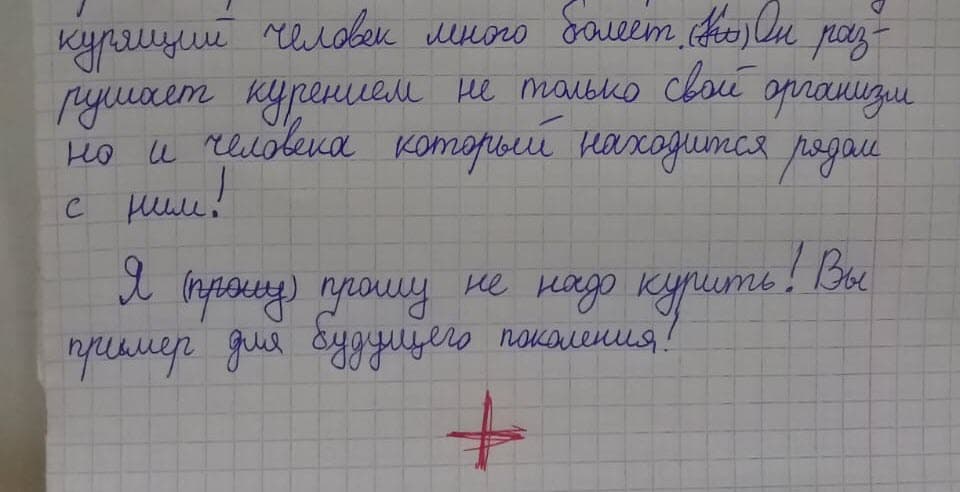 курящий человек много болеет. Он раз-
рушает курением не только свой организм
но и человека который находится рядом
с ним!
Я (прошу) прошу не надо курить! Вы
пример для будущего поколения!